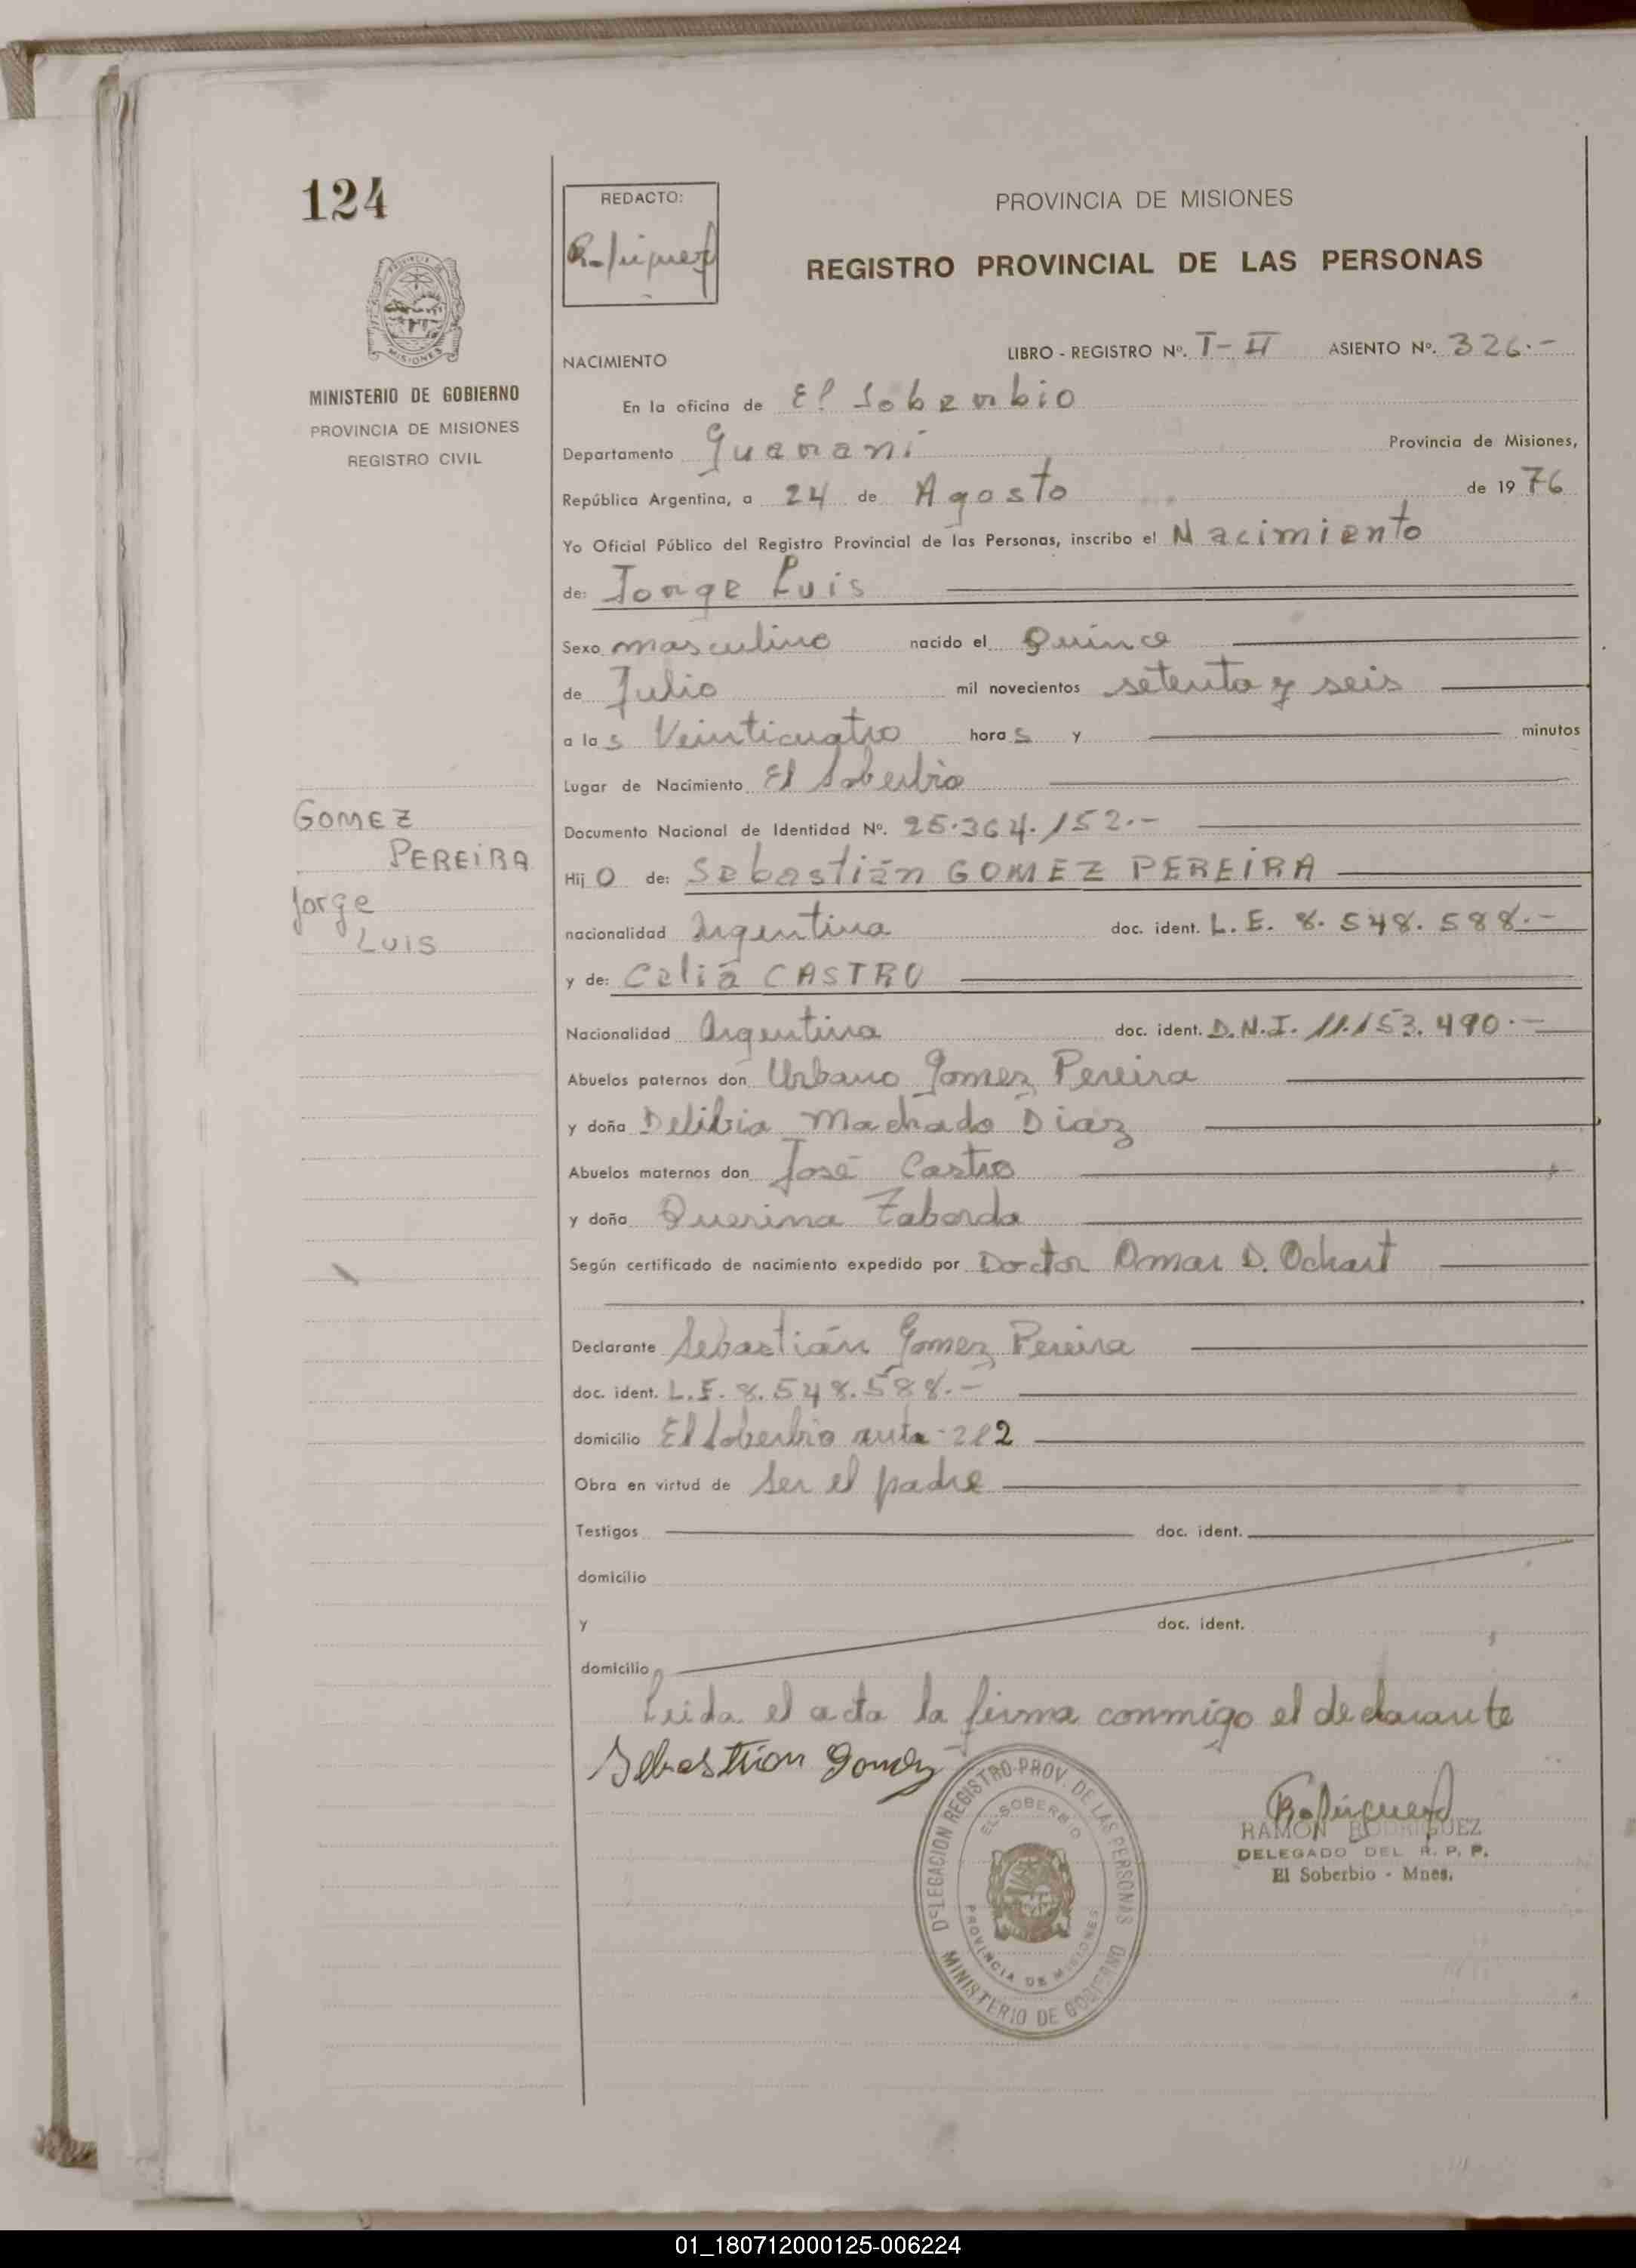 124
REDACTO:
PROVINCIA DE MISIONES
REGISTRO PROVINCIAL DE LAS PERSONAS
MISIONES
MINISTERIO DE GOBIERNO
PROVINCIA DE MISIONES
REGISTRO CIVIL
NACIMIENTO
LIBRO - REGISTRO Nº. I-II ASIENTO Nº. 326.-
En la oficina de El Soberbio
Departamento Guarani Provincia de Misiones,
República Argentina, a 24 de Agosto de 1976
Yo Oficial Público del Registro Provincial de las Personas, inscribo el Nacimiento
de: Jorge Luis
Sexo masculino nacido el Quince
de Julio mil novecientos setenta y seis
a las Veinticuatro horas y minutos
Lugar de Nacimiento El Soberbio
Documento Nacional de Identidad Nº. 25.364.152.-
GOMEZ
PEREIRA
Jorge
LUIS
Hijo de: Sebastián GOMEZ PEREIRA
nacionalidad Argentina doc. ident. L.E. 8.548.588.-
y de: Celia CASTRO
Nacionalidad Argentina doc. ident. D.N.I. 11.153.490.-
Abuelos paternos don Urbano Gomez Pereira
y doña Delibia Machado Diaz
Abuelos maternos don José Castro
y doña Querina Taborda
Según certificado de nacimiento expedido por Doctor Omar D. Ochart
Declarante Sebastián Gomez Pereira
doc. ident. L.E. 8.548.588.-
domicilio El Soberbio ruta-212
Obra en virtud de Ser el padre
Testigos doc. ident.
domicilio
y doc. ident.
domicilio
Leida el acta la firma conmigo el declarante
Sebastian Gomez
DELEGACION REGISTRO PROV. DE LAS PERSONAS
EL SOBERBIO
PROVINCIA DE MISIONES
MINISTERIO DE GOBIERNO
RAMON RODRIGUEZ
DELEGADO DEL R. P. P.
El Soberbio - Mnes.
01_180712000125-006224